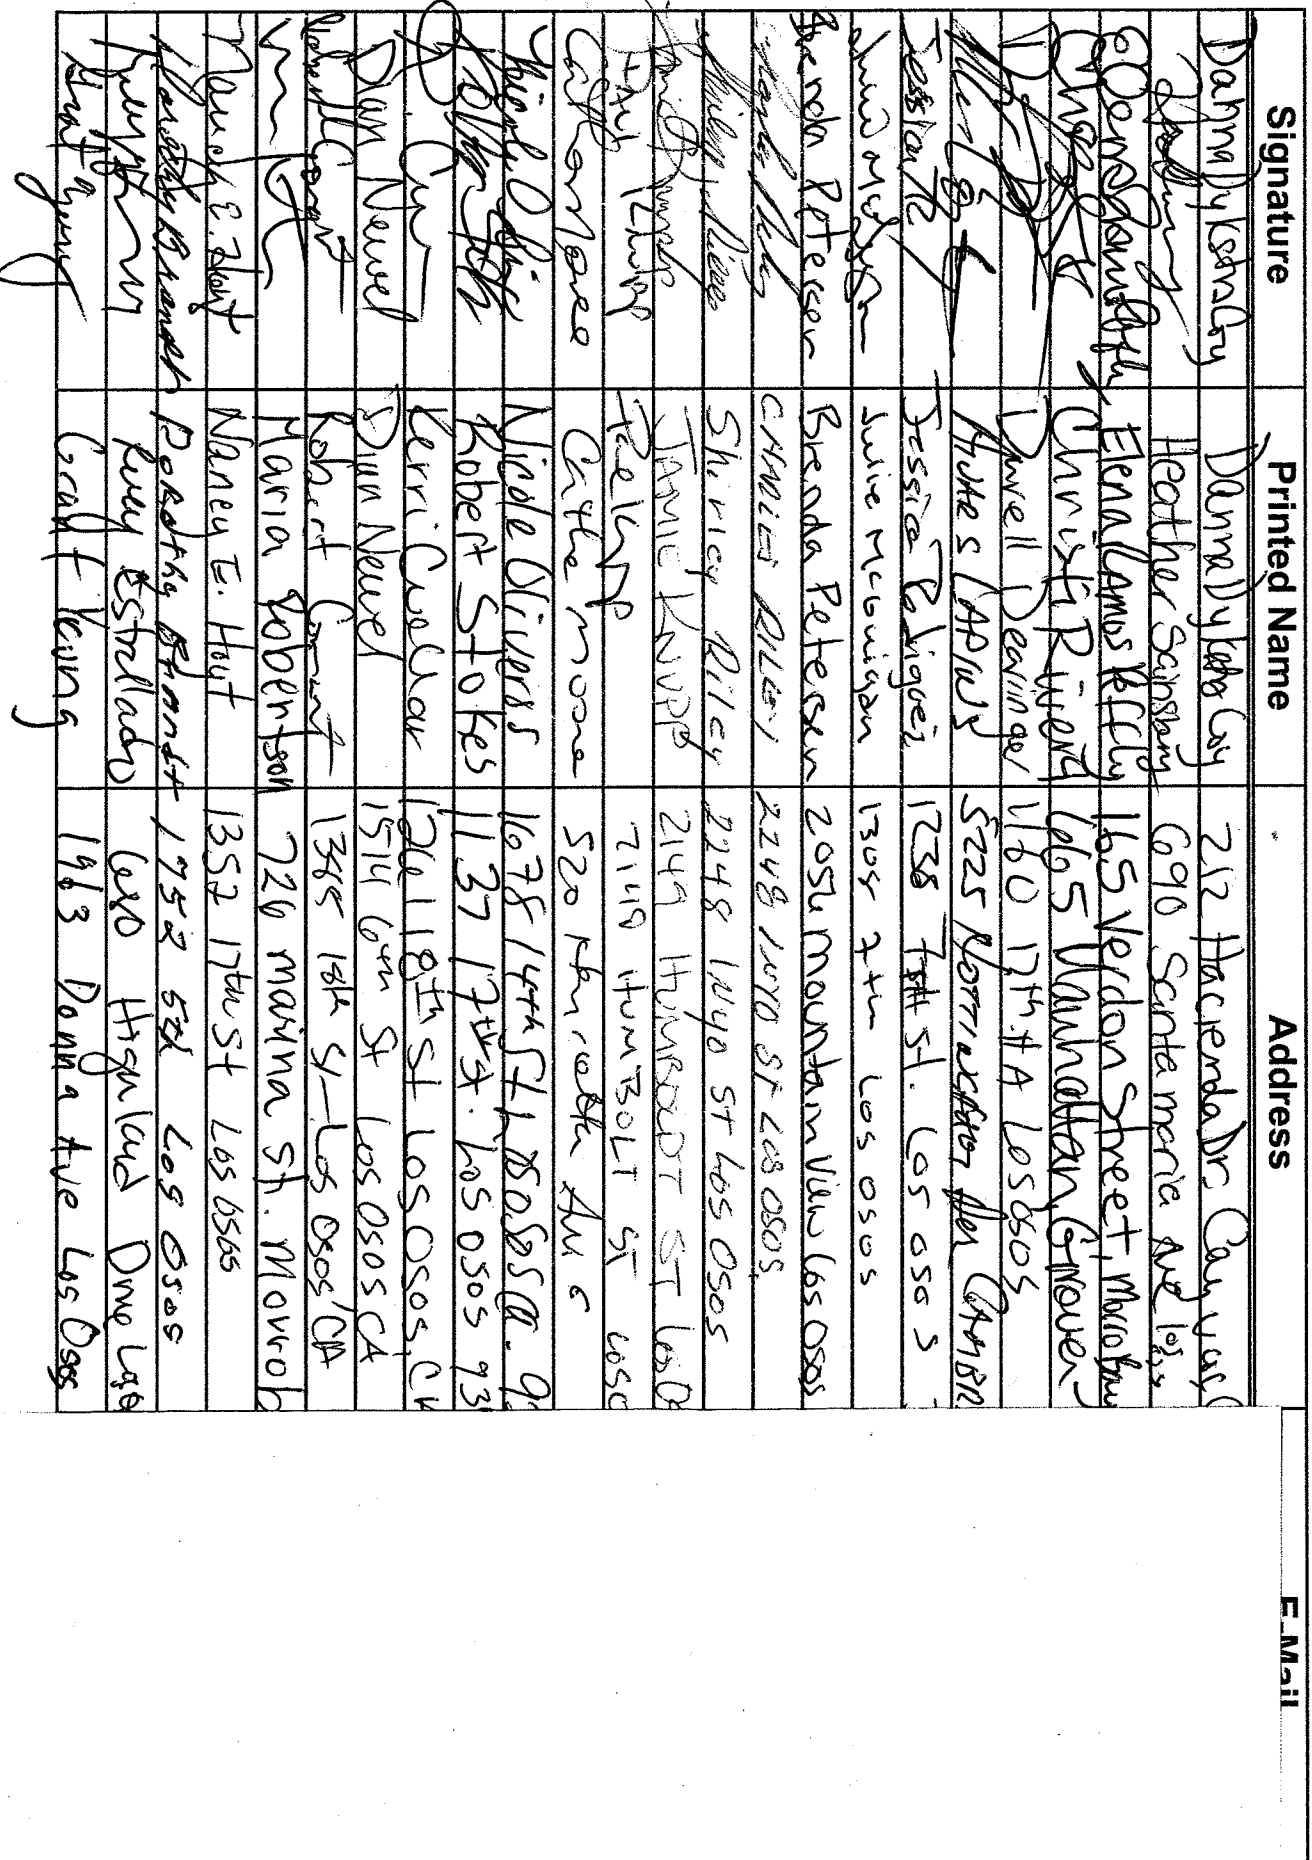 Signature Printed Name Address E-Mail
Danna Dykstra Coy Danna Dykstra Coy 212 Hacienda Dr. Cayucos, C
Heather Sainsbury 690 Santa maria Ave los osos
Elena Ramos Reffly 165 Verdon Street, Morro Bay
Christi Rivera 1665 Manhattan, Grover
Darrell Dearinger 1160 17th. # A Los Osos
5225 Nottingham CAMBR
Jessica Rodriguez 1238 7th St. Los osos
Julie McGuigan Julie McGuigan 1305 7th Los osos
Brenda Petersen Brenda Petersen 2054 mountain View Los Osos
CHARLES RILEY 2248 INYO ST LOS OSOS,
Shirley Riley Shirley Riley 2248 Inyo ST Los Osos
Jamie Knupp JAMIE KNUPP 2149 HUMBOLDT ST Los O
2149 HUMBOLT ST LOSO
Cathe Moore Cathe moore 520 Ave
Nicole Olivers 1678 14th St Los Osos Ca. 9
Robert Stokes 1137 17th St. Los Osos 93
Kerri Cuellar 1261 18th St Los Osos, CA
Dian Newel Dian Newel 1514 6th St Los Osos CA
Robert 18th St Los Osos CA
Maria Robertson 726 marina St. Morro b
Nancy E. Hoyt Nancy E. Hoyt 1352 17th St Los Osos
Dorothy Brandt Dorothy Brandt 1752 5th Los Osos
Estrellado Highland Drive Los O
Grant Young Grant Young 1963 Donna Ave Los Osos